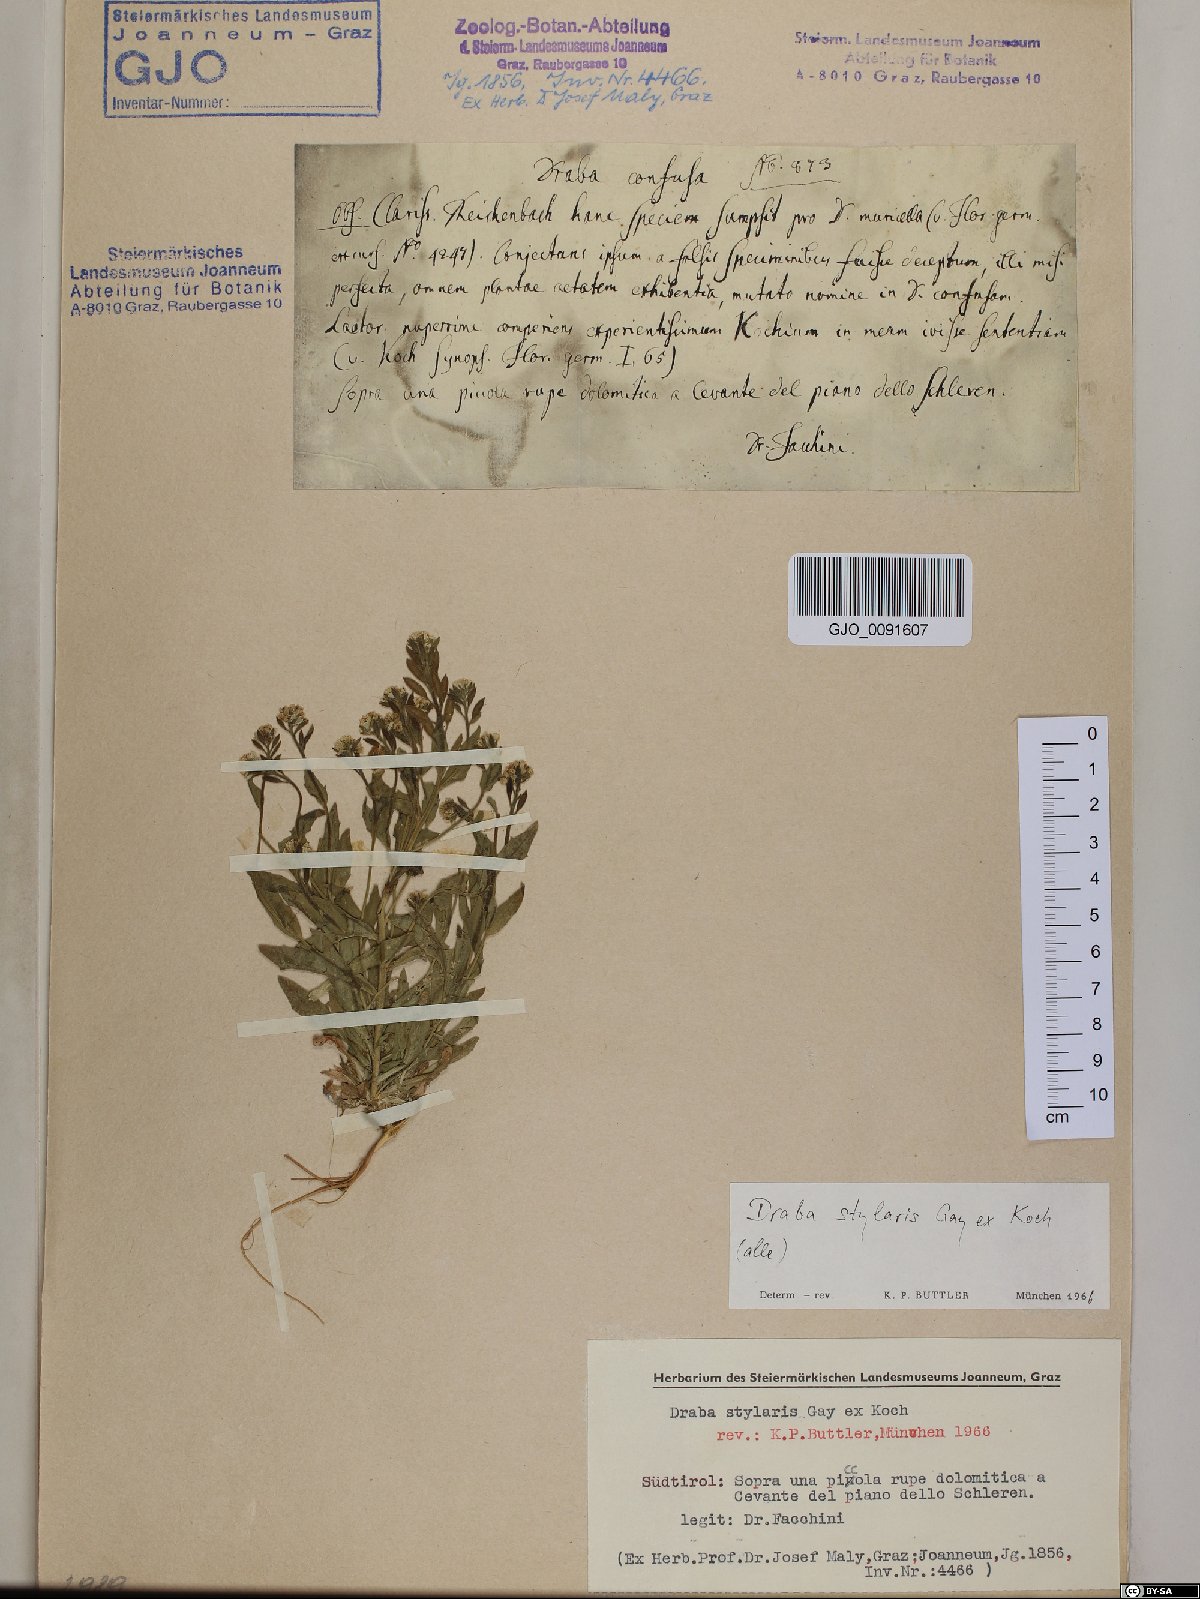 Steiermärkisches Landesmuseum
Joanneum - Graz
GJO
Inventar-Nummer:
Zoolog.-Botan.-Abteilung
d. Steierm. Landesmuseums Joanneum
Graz, Raubergasse 10
Jg. 1856, Inv. Nr. 4466.
Ex Herb. D Josef Maly, Graz
Steierm. Landesmuseum Joanneum
Abteilung für Botanik
A-8010 Graz, Raubergasse 10
Steiermärkisches
Landesmuseum Joanneum
Abteilung für Botanik
A-8010 Graz, Raubergasse 10
Draba confusa No. 873
Obs. Clariss. Reichenbach hanc speciem sumpsit pro D. (v. Flor. germ.
No. 4247). ipsum a falsis speciminibus deceptum, illi misi
perfecta, omnem plantae aetatem exhibentia, mutato nomine in D. confusam.
nuperrime experientissimum Kochium in meam ivisse sententiam
(v. Koch Synops. Flor. germ. I. 65)
Sopra una picola rupe dolomitica a Cevante del piano dello Schleren.
Dr. Facchini.
GJO_0091607
0
1
2
3
4
5
6
7
8
9
10
cm
Draba stylaris Gay ex Koch
(alle)
Determ – rev. K. P. BUTTLER München 1966
Herbarium des Steiermärkischen Landesmuseums Joanneum, Graz
Draba stylaris Gay ex Koch
rev.: K.P.Buttler,München 1966
Südtirol: Sopra una piccola rupe dolomitica a
Cevante del piano dello Schleren.
legit: Dr.Facchini
(Ex Herb.Prof.Dr.Josef Maly,Graz;Joanneum,Jg.1856,
Inv.Nr.:4466 )
BY-SA